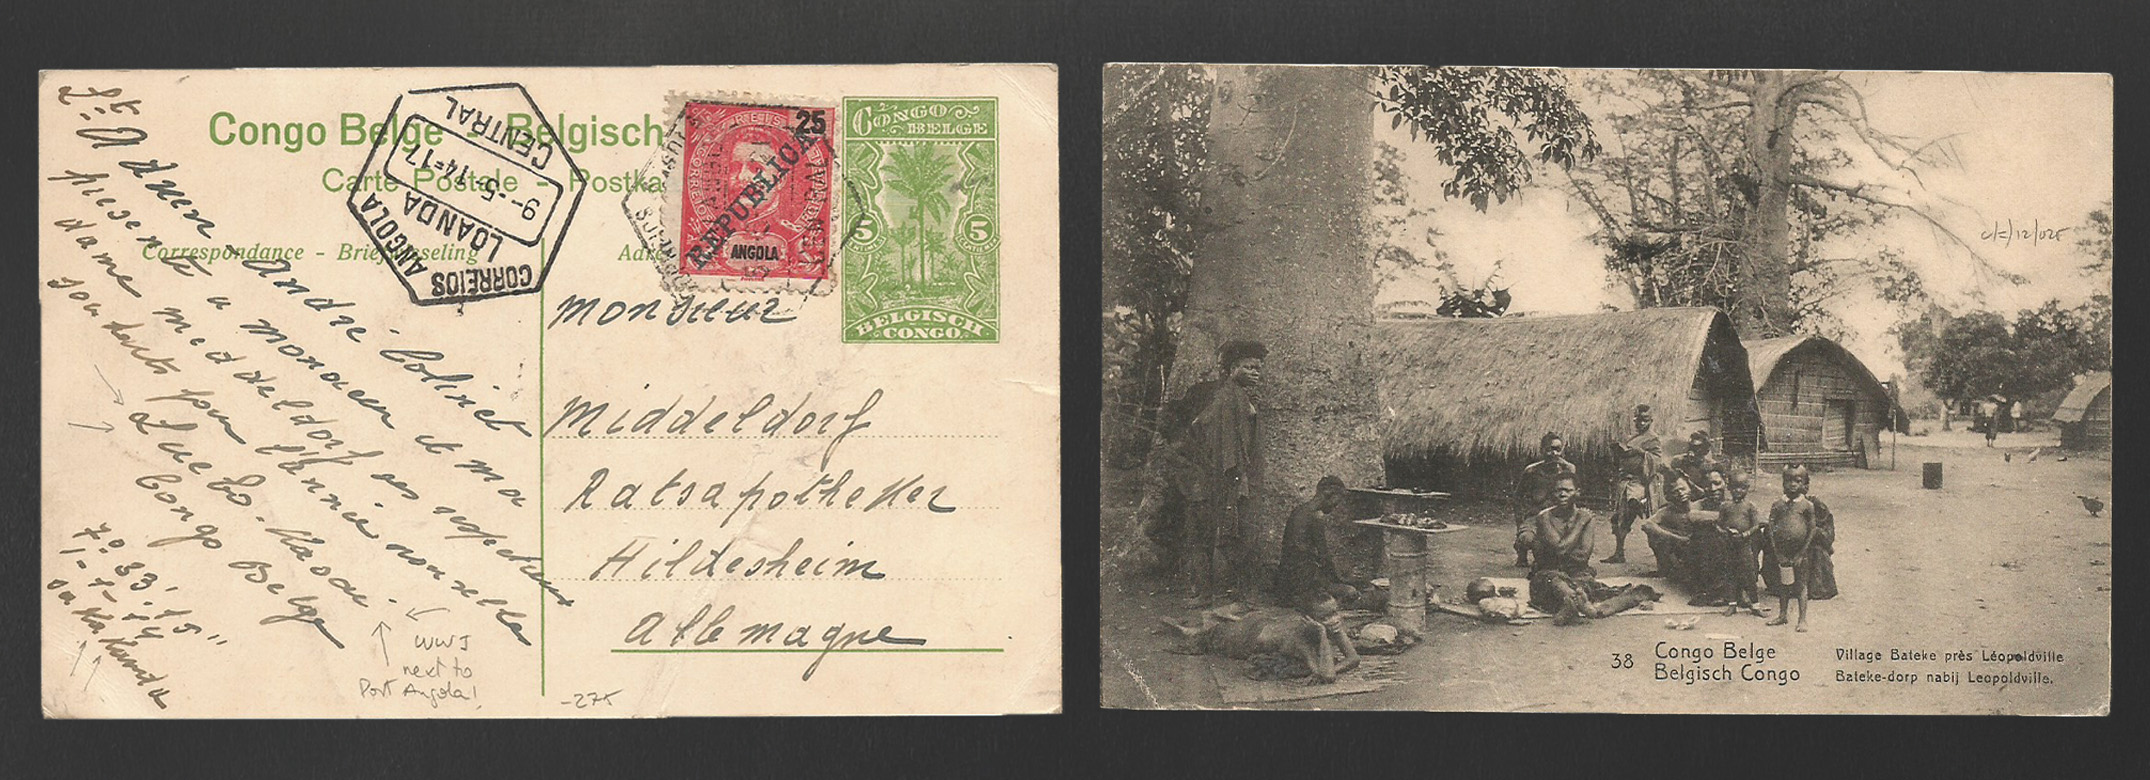 Congo Belge - Belgisch
Carte Postale - Postka
Correspondance - Briefwisseling
Adre
CORREIOS ANGOLA
LOANDA
9--5-14-17
CENTRAL
25
REIS
CORREIOS
REPUBLICA
ANGOLA
CONGO
BELGE
5 5
CENTIMES CENTIEMEN
BELGISCH
CONGO
Monsieur
Middeldorf
Ratsapotheker
Hildesheim
Allemagne
Adrien André Colinet
présente a monsieur et ma
dame middeldorf ses
souhaits pour l'année nouvelle
Luebo - Kasai -
Congo Belge
7° 33' 15"
1-1-14
WWI
next to
Port Angola!
-275
38 Congo Belge
Belgisch Congo
Village Bateke près Léopoldville
Bateke-dorp nabij Leopoldville.